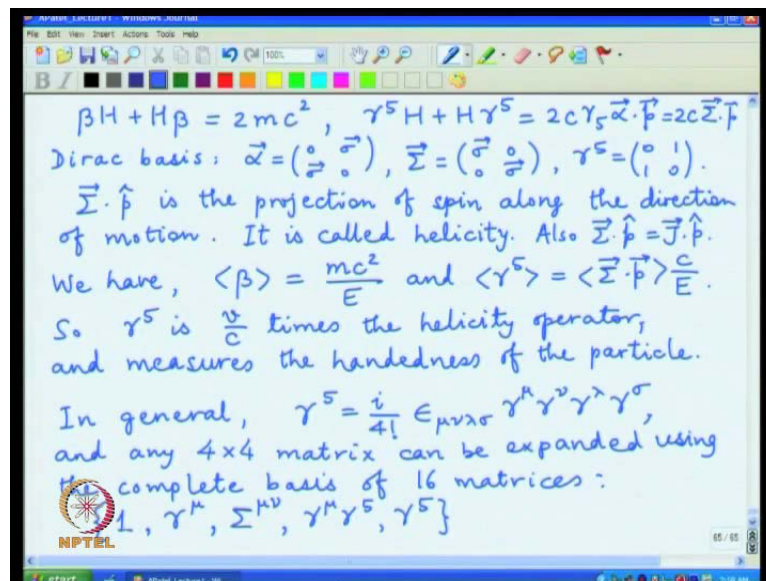 APatel_Lecture1 - Windows Journal
File Edit View Insert Actions Tools Help
100%
B I
βH + Hβ = 2mc², γ⁵H + Hγ⁵ = 2cγ₅α⃗·p⃗ = 2cΣ⃗·p⃗
Dirac basis: α⃗ = (0 σ⃗ ; σ⃗ 0), Σ⃗ = (σ⃗ 0 ; 0 σ⃗), γ⁵ = (0 1 ; 1 0).
Σ⃗·p̂ is the projection of spin along the direction
of motion. It is called helicity. Also Σ⃗·p̂ = J⃗·p̂.
We have, <β> = mc²/E and <γ⁵> = <Σ⃗·p⃗> c/E.
So γ⁵ is v/c times the helicity operator,
and measures the handedness of the particle.
In general, γ⁵ = i/4! ϵ_{μνλσ} γ^μ γ^ν γ^λ γ^σ,
and any 4×4 matrix can be expanded using
the complete basis of 16 matrices:
{1, γ^μ, Σ^{μν}, γ^μγ⁵, γ⁵}
NPTEL
65 / 65
start